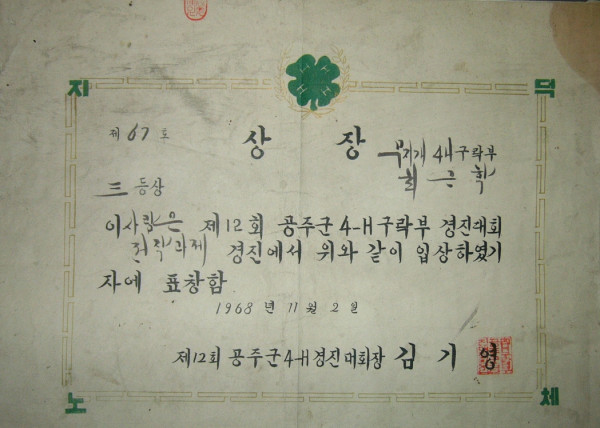 지 덕
H H H H
제 67 호
상 장
무지개 4H구락부
최 근 학
三 등상
이사람은 제12회 공주군 4-H구락부 경진대회
경진에서 위와 같이 입상하였기
자에 표창함
1968 년 11 월 2 일
제12회 공주군4-H경진대회장 김 기 영
노 체